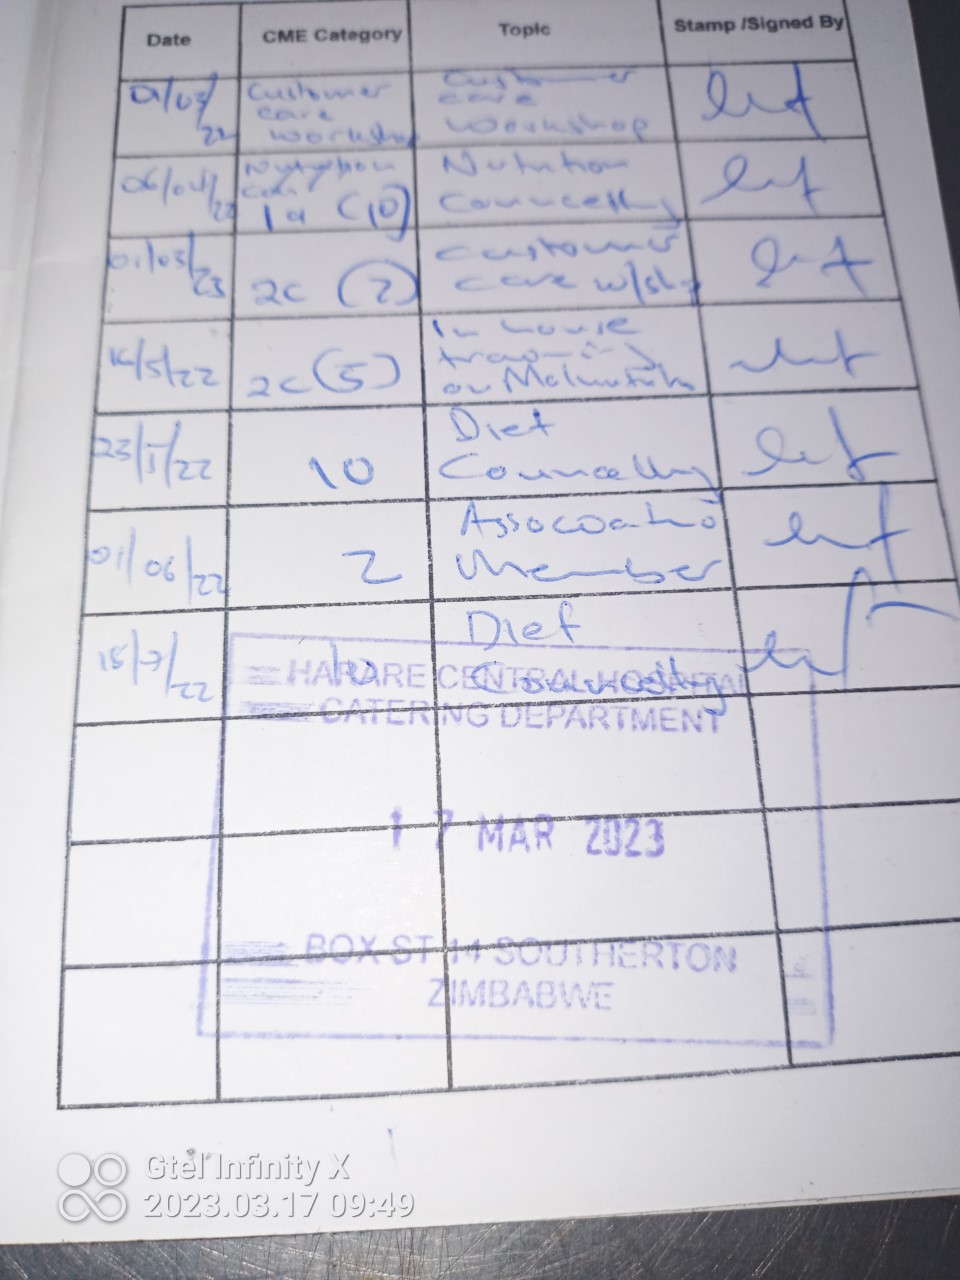 Date CME Category Topic Stamp /Signed By
01/03/22 Customer care workshop Customer care workshop
06/04/22 1a (10) Nutrition Councelling
01/03/23 2c (2) Customer care w/shp
14/5/22 2c (5) In house training on Malnutrition
23/5/22 10 Diet Councelling
01/06/22 2 Member
15/7/22 10 Diet
HARARE CENTRAL HOSPITAL
CATERING DEPARTMENT
17 MAR 2023
BOX ST 14 SOUTHERTON
ZIMBABWE
Gtel Infinity X
2023.03.17 09:49